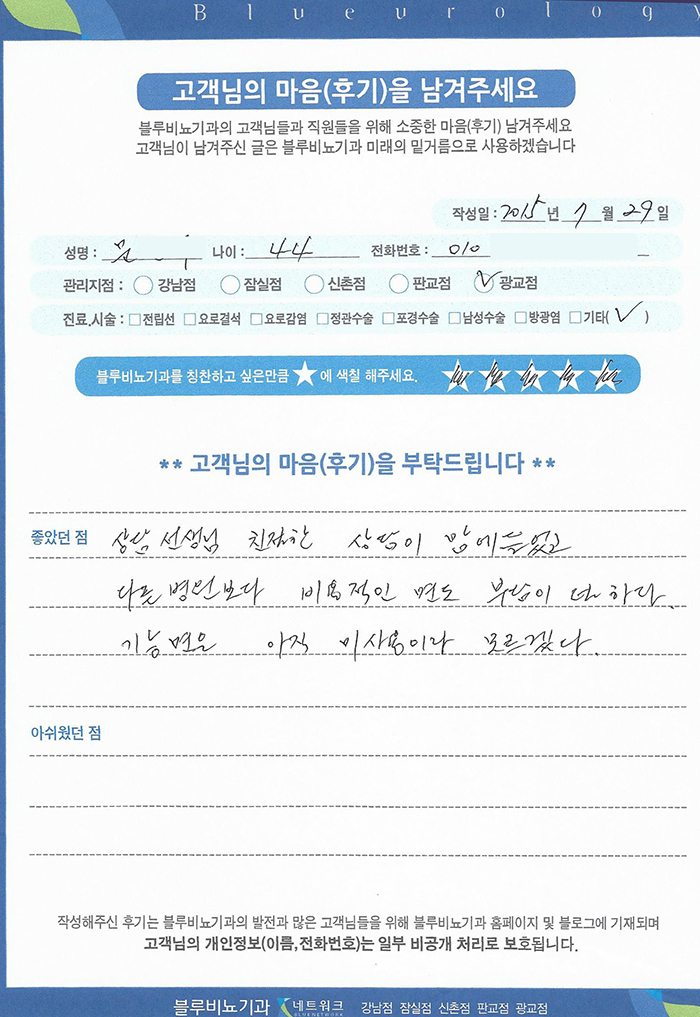 Blueurology
고객님의 마음(후기)을 남겨주세요
블루비뇨기과의 고객님들과 직원들을 위해 소중한 마음(후기) 남겨주세요
고객님이 남겨주신 글은 블루비뇨기과 미래의 밑거름으로 사용하겠습니다
작성일 : 2015 년 7 월 29 일
성명 : 나이 : 44 전화번호 : 010
관리지점 : 강남점 잠실점 신촌점 판교점 광교점
진료.시술 : 전립선 요로결석 요로감염 정관수술 포경수술 남성수술 방광염 기타( )
블루비뇨기과를 칭찬하고 싶은만큼 ★에 색칠 해주세요.
** 고객님의 마음(후기)을 부탁드립니다 **
좋았던 점 상담 선생님 친절한 상담이 맘에들었고
다른병원보다 비용적인 면도 부담이 덜하다.
기능면은 아직 미사용이라 모르겠다.
아쉬웠던 점
작성해주신 후기는 블루비뇨기과의 발전과 많은 고객님들을 위해 블루비뇨기과 홈페이지 및 블로그에 기재되며
고객님의 개인정보(이름,전화번호)는 일부 비공개 처리로 보호됩니다.
블루비뇨기과 네트워크 BLUENETWORK 강남점 잠실점 신촌점 판교점 광교점